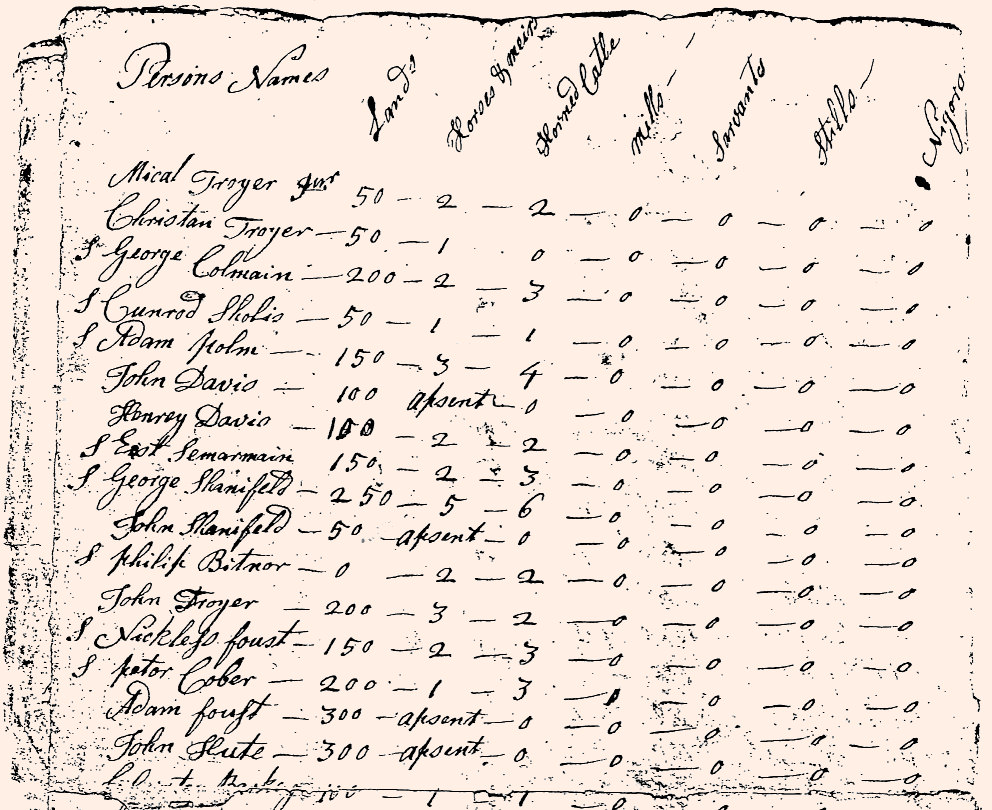 Persons Names Lands Horses & meirs Horned Catle mills — Sarvants Stills — Nigors
Mical Troyer Junr 50 — 2 — 2 — 0 — 0 — 0 0
Christan Troyer — 50 — 1 0 — 0 — 0 — 0 — 0
S George Colmain — 200 — 2 3 — 0 — 0 — 0 — 0
S Cunrod Skolis — 50 — 1 — 1 — 0 — 0 — 0 — 0
S Adam polm — 150 — 3 — 4 — 0 — 0 — 0 — 0
John Davis — 100 apsent — 0 — 0 — 0 — 0
Henrey Davis — 100 — 2 — 2 — 0 — 0 — 0 — 0
S East Semarmain 150 — 2 — 3 — 0 — 0 — 0 — 0
S George Skanifeld — 250 — 5 — 6 — 0 — 0 — 0 — 0
John Skanifeld — 50 — apsent — 0 — 0 — 0 — 0 — 0
S philip Bitnor — 0 — 2 — 2 — 0 — 0 — 0 — 0
John Troyer — 200 — 3 — 2 — 0 — 0 — 0 — 0
S Nickless foust — 150 — 2 — 3 — 0 — 0 — 0 — 0
S petor Cober — 200 — 1 — 3 — 0 — 0 — 0 — 0
Adam foust — 300 — apsent — 0 — 0 — 0 — 0 — 0
John Slute — 300 — apsent — 0 — 0 — 0 — 0 — 0
100 — 1 — 1 — 0